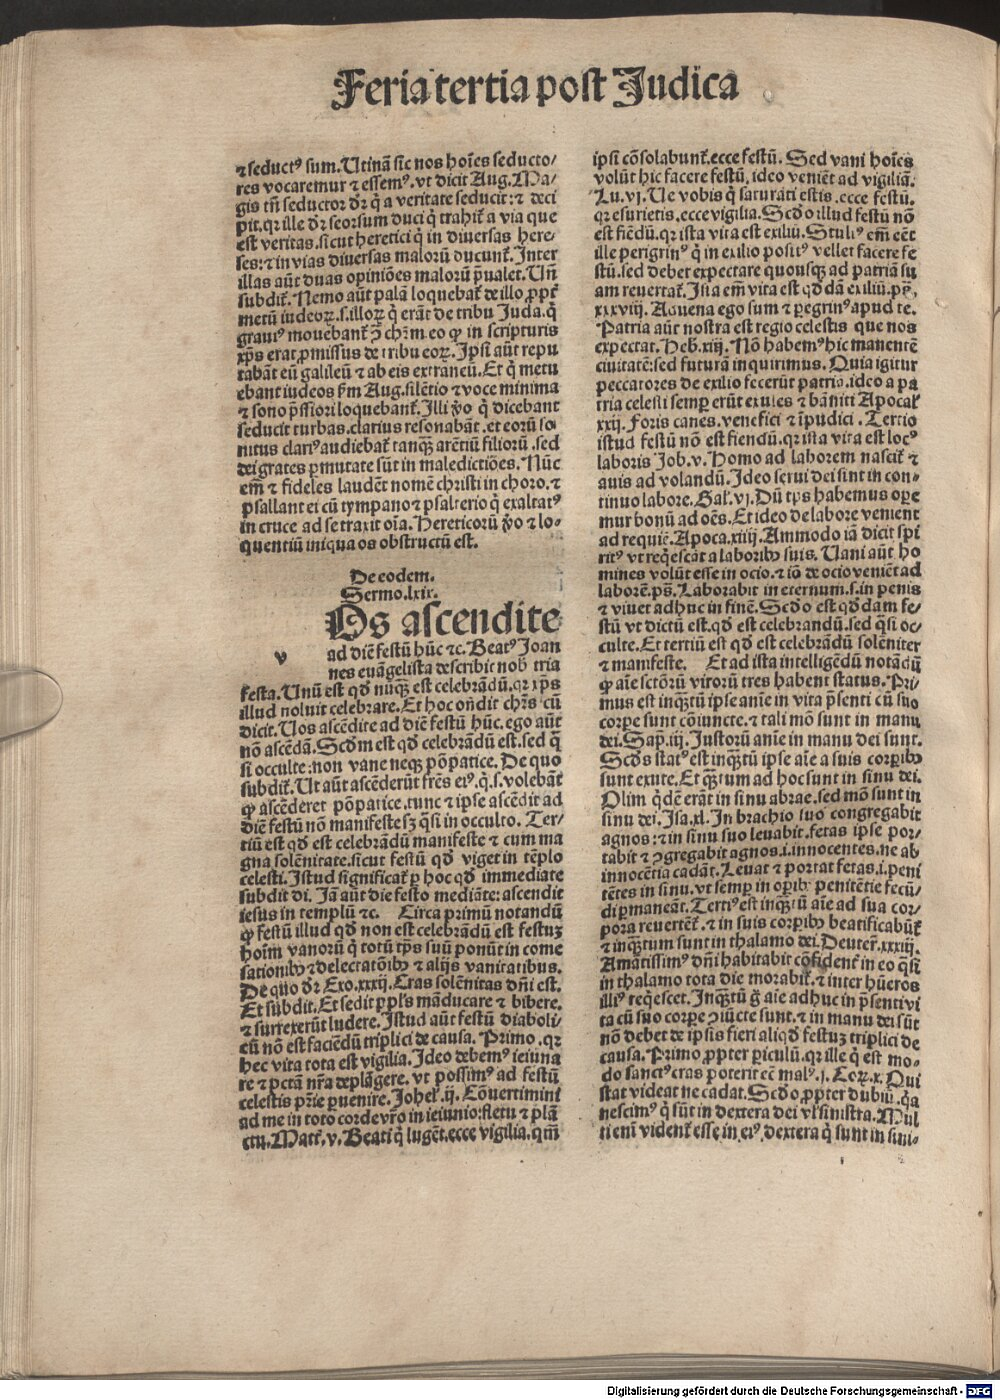 Feria tertia post Judica
⁊ seductꝰ sum. Utinā sic nos hoīes seducto/
res vocaremur ⁊ essemꝰ. vt dicit Aug. Ma/
gis tn̄ seductor dr̄ q̇ a veritate seducit: ⁊ deci
pit. qr ille dr̄ seorsum duci q̇ trahit̄ a via que
est veritas. sicut heretici q̇ in diuersas here/
ses: ⁊ in vias diuersas malorū ducunt̄. Inter
illas aūt duas opiniōes malorū p̄ualet. Un̄
subdit̄. Nemo aūt palā loquebat̄ de illo ꝓpt̄
metū iudeoꝝ. s. illoꝝ q̇ erāt de tribu Juda. q̇
grauiꝰ mouebant̄ ꝯ chr̄m eo ꝙ in scripturis
xp̄s erat ꝓmissus de tribu eoꝝ. Ipsi aūt repu
tabāt eū galileū ⁊ ab eis extraneū. Et q̇ metu
ebant iudeos ẜm Aug. silētio ⁊ voce minima
⁊ sono p̄ssiori loquebant̄. Illi v̄o q̇ dicebant
seducit turbas. clarius resonabāt. et eorū so
nitus clariꝰ audiebat̄ tanqꝫ arētiū filiorū. sed
dei grates ꝑmutate sūt in maledictiōes. Nūc
em̄ ⁊ fideles laudēt nomē christi in choro. ⁊
psallant ei cū tympano ⁊ psalterio q̇ exaltatꝰ
in cruce ad se traxit oīa. Hereticorū v̄o ⁊ lo-
quentiū iniqua os obstructū est.
De eodem.
Sermo. lxix.
Os ascendite
v ad diē festū hūc ⁊c. Beatꝰ Joan
nes euāgelista describit nob̄ tria
festa. Unū est qđ nūqꝫ est celebrādū. qr xp̄s
illud noluit celebrare. Et hoc on̄dit chr̄s cū
dicit. Uos ascēdite ad diē festū hūc. ego aūt
nō ascēdā. Scđm est qđ celebrādū est. sed q̄
si occulte: non vane neqꝫ pōpatice. De quo
subdit̄. Ut aūt ascēderūt fr̄es eiꝰ. q̇. s. volebāt
ꝙ ascēderet pōpatice. tunc ⁊ ipse ascēdit ad
diē festū nō manifeste sꝫ q̄si in occulto. Ter-
tiū est qđ est celebrādū manifeste ⁊ cum ma
gna solēnitate. sicut festū qđ viget in tēplo
celesti. Istud significat̄ ꝑ hoc qđ immediate
subdit di. Jā aūt die festo mediāte: ascendit
iesus in templū ⁊c. Circa primū notandū
ꝙ festū illud qđ non est celebrādū est festuꝫ
hoīm vanorū q̇ totū tp̄s suū ponūt in come
sationibꝰ ⁊ delectatōibꝰ ⁊ alijs vanitatibus.
De quo dr̄ Exo. xxxij. Cras solēnitas dn̄i est.
Et subdit. Et sedit ppl̄s māducare ⁊ bibere.
⁊ surrexerūt ludere. Istud aūt festū diaboli/
cū nō est faciēdū triplici de causa. Primo. qr
hec vita tota est vigilia. Ideo debemꝰ ieiuna
re ⁊ pctā nr̄a deplāgere. vt possimꝰ ad festū
celestis pr̄ie ꝑuenire. Johel̄. ij. Cōuertimini
ad me in toto corde vr̄o in ieiunio: fletu ⁊ plā
ctu. Matt̄. v. Beati q̇ lugēt. ecce vigilia. qm̄
ipsi cōsolabunt̄. ecce festū. Sed vani hoīes
volūt hic facere festū, ideo veniēt ad vigiliā.
Lu. vj. Ue vobis q̇ saturati estis. ecce festū.
qr esurietis. ecce vigilia. Scđo illud festū nō
est fiēdū. qr ista vita est exiliū. Stulꝰ em̄ eēt
ille perigrinꝰ q̇ in exilio positꝰ vellet facere fe
stū. sed debet expectare quousqꝫ ad patriā su
am reuertat̄. Ista em̄ vita est qđdā exiliū. ps̄.
xxxviij. Aduena ego sum ⁊ ꝑegrinꝰ apud te.
Patria aūt nostra est regio celestis que nos
expectat. Heb. xiij. Nō habemꝰ hic manentē
ciuitatē: sed futurā inquirimus. Quia igitur
peccatores de exilio fecerūt patriā. ideo a pa
tria celesti semꝑ erūt exules ⁊ bāniti Apocal̄
xxij. Foris canes. venefici ⁊ īpudici. Tertio
istud festū nō est fiendū. qr ista vita est locꝰ
laboris Job. v. Homo ad laborem nascit̄ ⁊
auis ad volandū. Ideo serui dei sint in con-
tinuo labore. Gal̄. vj. Dū tp̄s habemus ope
mur bonū ad oēs. Et ideo de labore venient
ad requiē. Apoca. xiiij. Ammodo iā dicit spi
ritꝰ vt reqėscāt a laboribꝰ suis. Uani aūt ho
mines volūt esse in ocio. ⁊ iō de ocio veniēt ad
laborē. ps̄. Laborabit in eternum. s. in penis
⁊ viuet adhuc in finē. Scđo est qđdam fe/
stū vt dictū est. qđ est celebrandū. sed q̄si oc/
culte. Et tertiū est qđ est celebrādū solēniter
⁊ manifeste. Et ad ista intelligēdū notādū
ꝙ aīe sctōrū virorū tres habent status. Pri/
mus est inqꝫtū ipse anīe in vita p̄senti cū suo
corꝑe sunt cōiuncte. ⁊ tali mō sunt in manu
dei. Sap̄. iij. Justorū anīe in manu dei sunt.
Scđs statꝰ est inqꝫtū ipse aīe a suis corꝑibꝰ
sunt exute. Et qꝫtum ad hoc sunt in sinu dei.
Olim q̇dē erāt in sinu abrae. sed mō sunt in
sinu dei. Isa. xl. In brachio suo congregabit
agnos: ⁊ in sinu suo leuabit. fetas ipse por/
tabit ⁊ ꝯgregabit agnos. i. innocentes. ne ab
innocētia cadāt. Leuat ⁊ portat fetas. i. peni
tētes in sinu. vt semꝑ in oꝑibꝰ penitētie fecū/
di ꝑmaneāt. Tertiꝰ est inqꝫtū aīe ad sua cor/
pora reuertēt̄. ⁊ in suis corꝑibꝰ beatificabūt̄
⁊ inqꝫtum sunt in thalamo dei. Deuter̄. xxxiij.
Amātissimꝰ dn̄i habitabit cōfident̄ in eo q̄si
in thalamo tota die morabit̄. ⁊ inter hūeros
illiꝰ reqėscet. Inqꝫtū g̊ aīe adhuc in p̄senti vi
ta cū suo corꝑe ꝯiūcte sunt. ⁊ in manu dei sūt
nō debet de ipsis fieri aliqđ festuꝫ triplici de
causa. Primo ꝓpter ꝑiculū. qr ille q̇ est mo/
do sanctꝰ cras poterit eē malꝰ. j. Coꝝ. x. Qui
stat videat ne cadat. Scđo ꝓpter dubiū. q̇a
nescimꝰ q̇ sūt in dextera dei vl̄ sinistra. Mul
ti enī vident̄ esse in eiꝰ dextera q̇ sunt in sini-
Digitalisierung gefördert durch die Deutsche Forschungsgemeinschaft - DFG